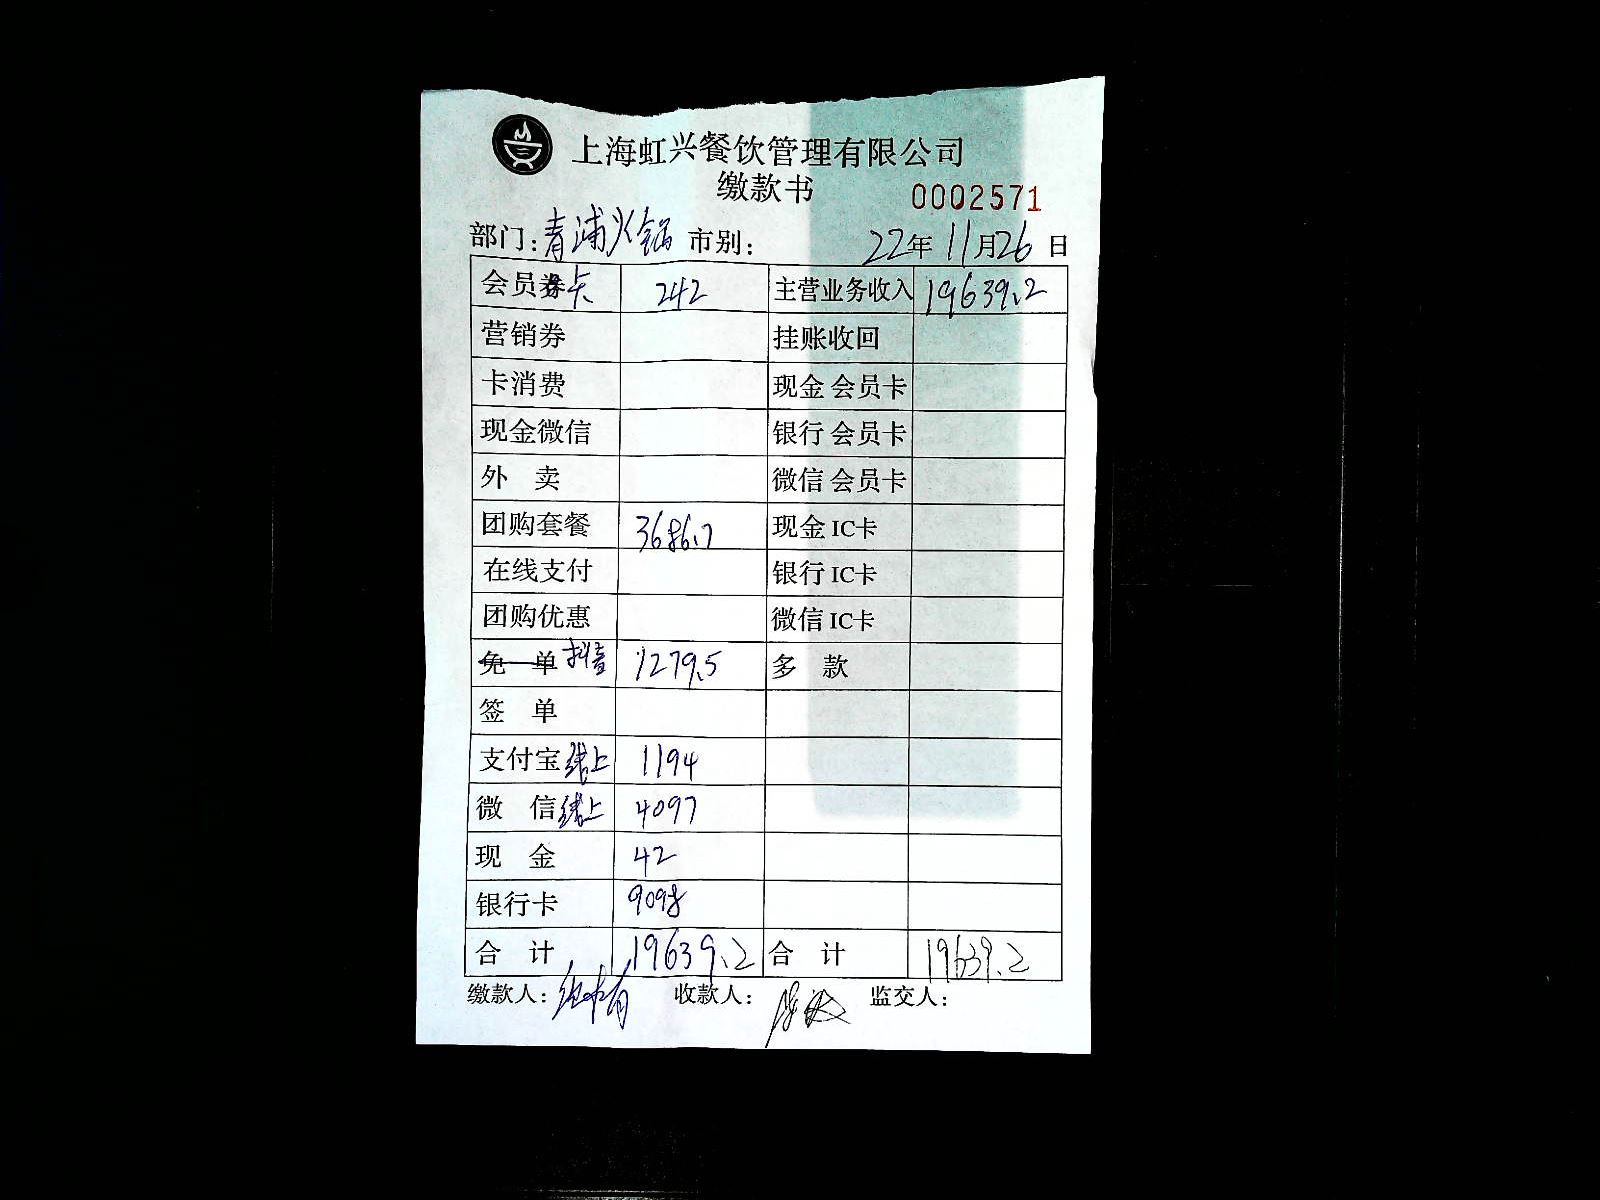 上海虹兴餐饮管理有限公司
缴款书 0002571
部门：青浦火锅 市别： 22年11月26日
会员卡 242 主营业务收入 19639.2
营销券 挂账收回
卡消费 现金 会员卡
现金微信 银行 会员卡
外 卖 微信 会员卡
团购套餐 3686.7 现金 IC卡
在线支付 银行 IC卡
团购优惠 微信 IC卡
免 单 抖音 1279.5 多 款
签 单
支付宝线上 1194
微 信线上 4097
现 金 42
银行卡 9098
合 计 19639.2 合 计 19639.2
缴款人： 收款人： 监交人：